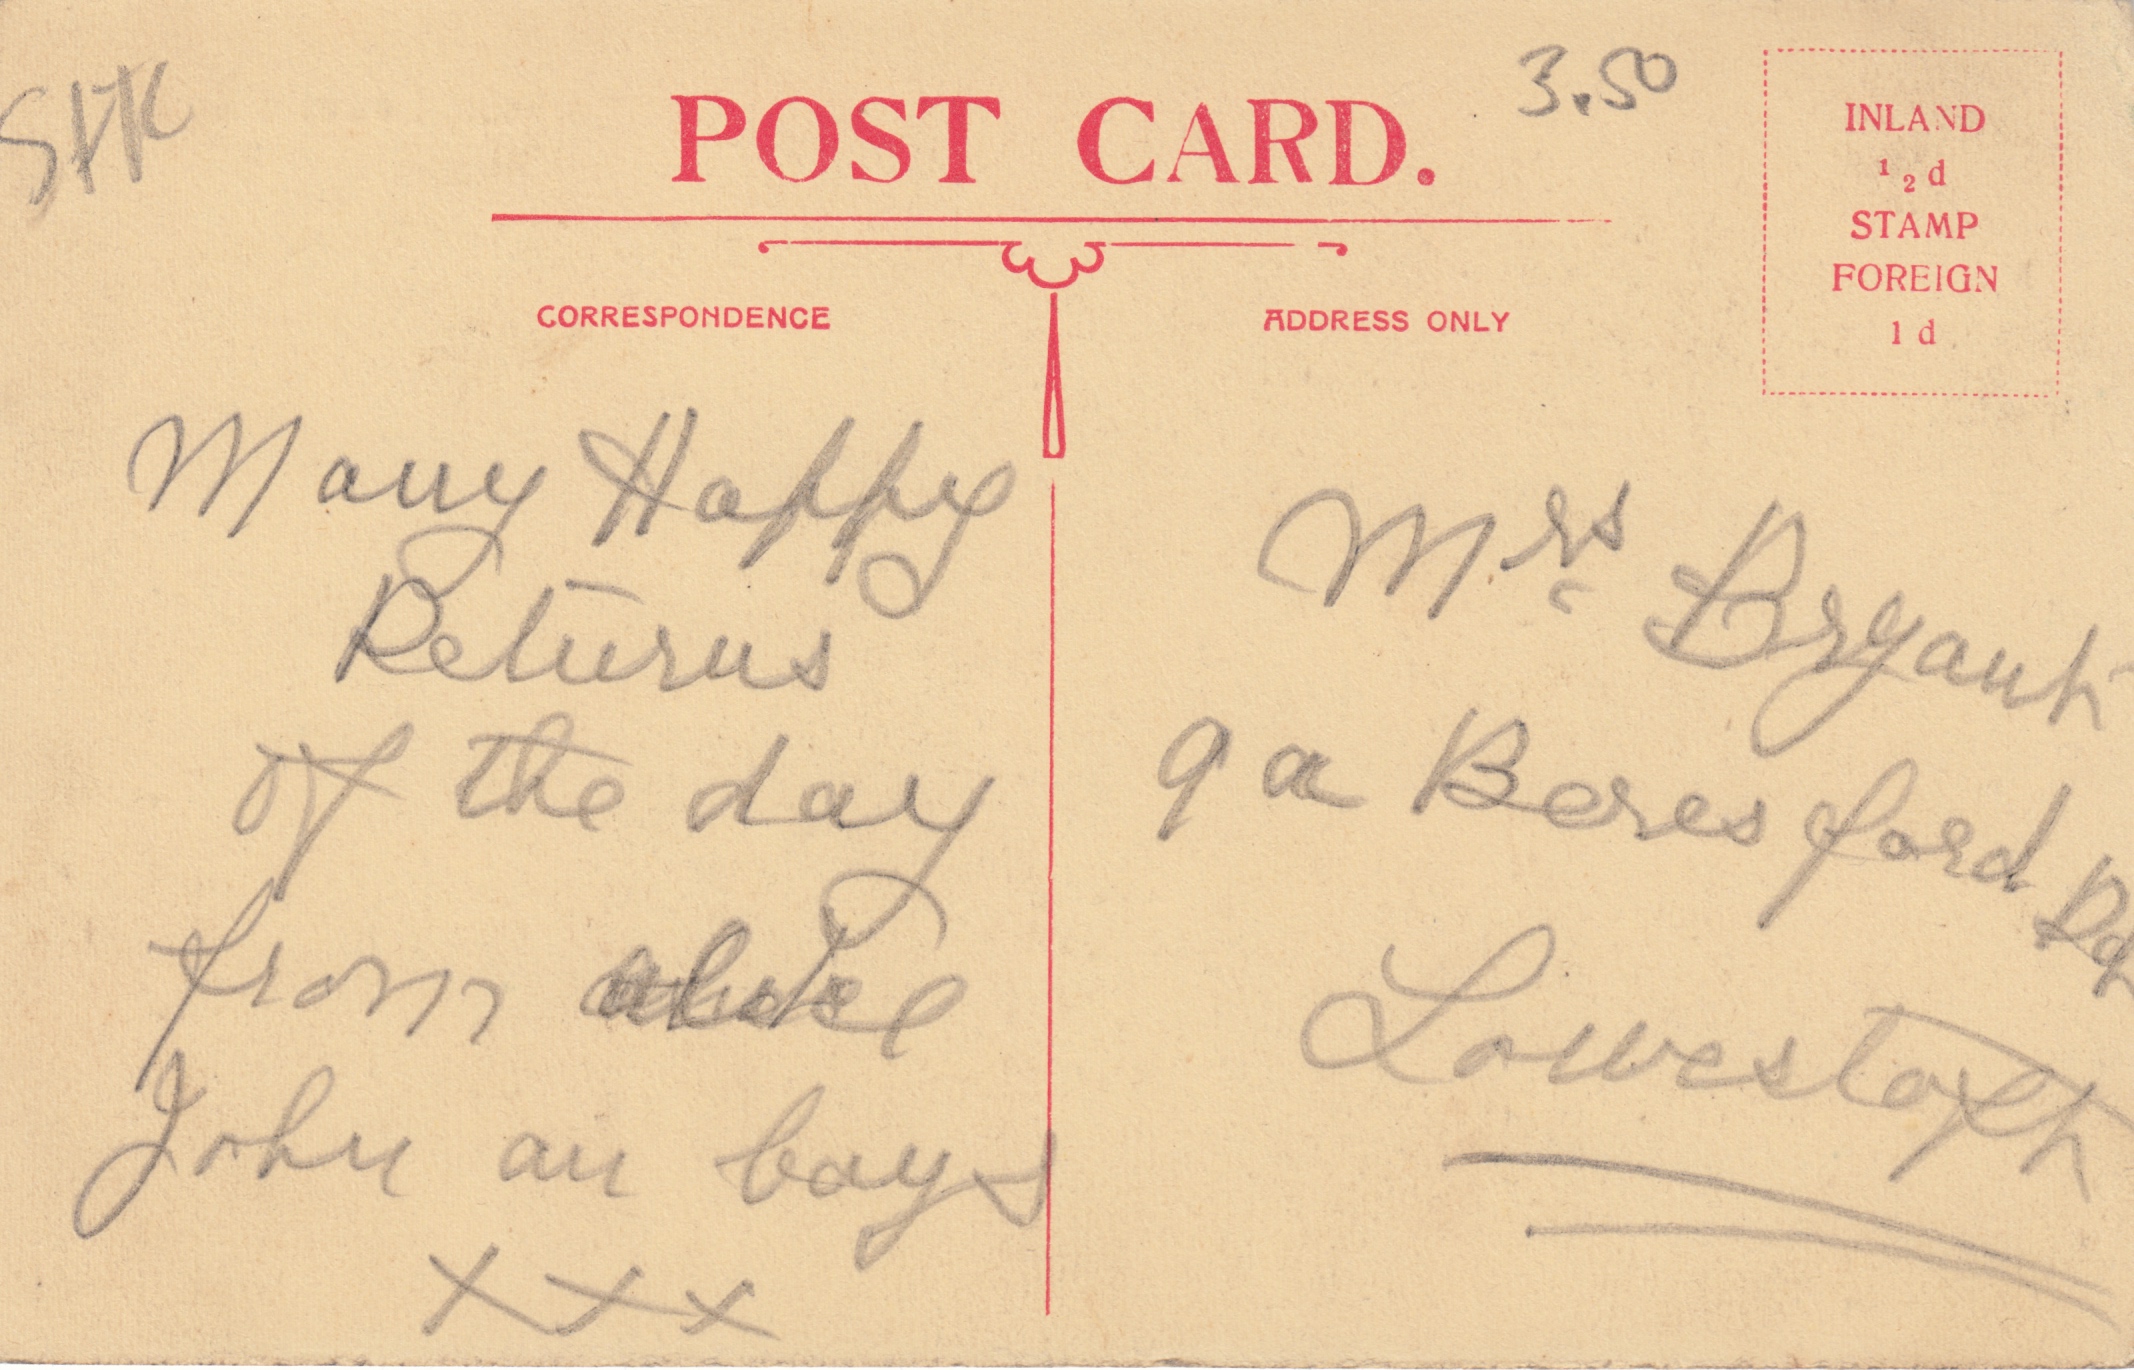 StK
POST CARD.
3.50
INLAND
½d
STAMP
FOREIGN
1d
CORRESPONDENCE
ADDRESS ONLY
Many Happy
Returns
of the day
from
John an boys
xxx
Mrs Bryant
9a Beresford Rd
Lowestoft